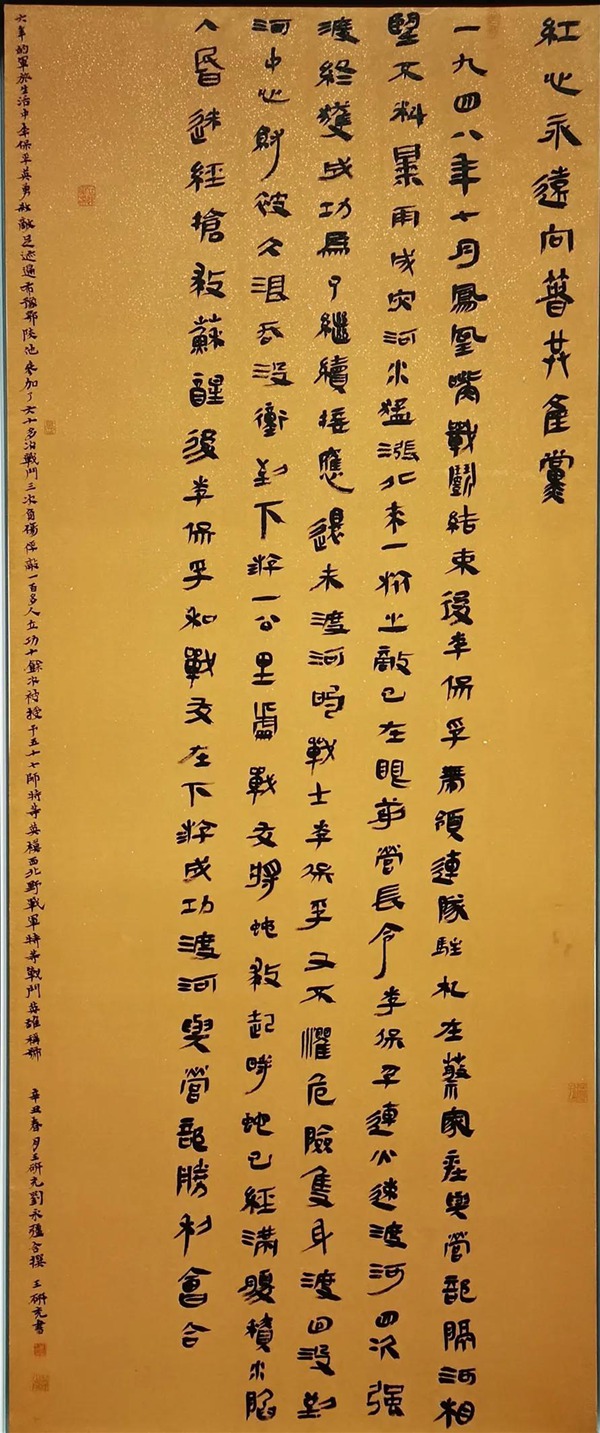 紅心永遠向着共產黨
一九四八年十月鳳凰嘴戰鬭結束後李保孚帶領連隊駐札在蔡家庄與營部隔河相
望不料暴雨成灾河水猛漲北来一侧之敵已在眼前營長令李保孚連火速渡河四次强
渡終獲成功爲了繼續接應還未渡河的戰士李保孚又不懼危險隻身渡回没到
河中心時被久浪吞没衝到下游一公里處戰友將他救起時他已經满腹積水陷
入昏迷經搶救蘇醒後李保孚和戰友在下游成功渡河與營部勝利會合
六年的軍旅生活中李保孚英勇殺敵足迹遍布豫鄂陕他參加了六十多次戰鬥三次負傷俘敵一百多人立功十餘次被授予五十七師特等英模西北野戰軍特等戰鬥英雄稱號
辛丑春月王研充劉永強合撰 王研充書